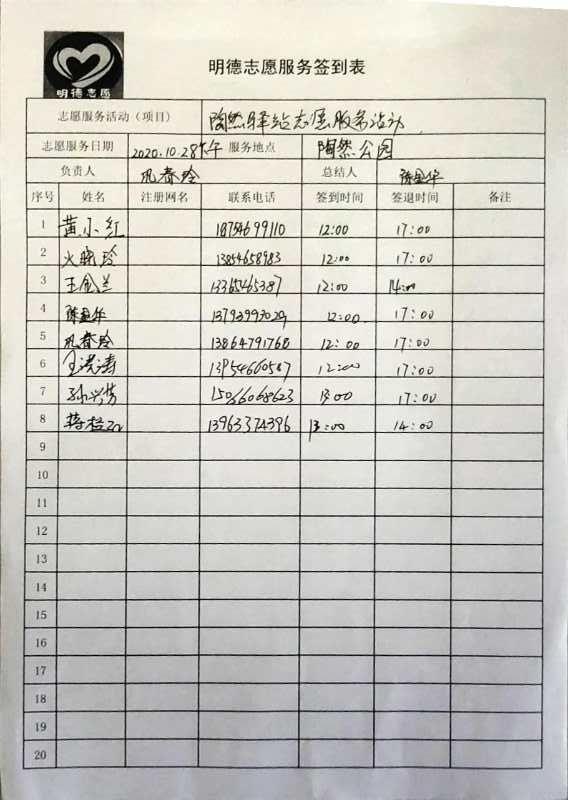 明德志愿
明德志愿服务签到表
志愿服务活动（项目） 陶然驿站志愿服务活动
志愿服务日期 2020.10.28下午 服务地点 陶然公园
负责人 巩春玲 总结人 陈显华
序号 姓名 注册网名 联系电话 签到时间 签退时间 备注
1 黄小红 18754699110 12:00 17:00
2 火晓玲 13854658983 12:00 17:00
3 王金兰 13365465387 12:00 14:00
4 陈显华 13793993029 12:00 17:00
5 巩春玲 13864791768 12:00 17:00
6 王洪涛 13954660587 12:00 17:00
7 孙兴芳 15066068623 13:00 17:00
8 蒋 13963374396 13:00 14:00
9
10
11
12
13
14
15
16
17
18
19
20